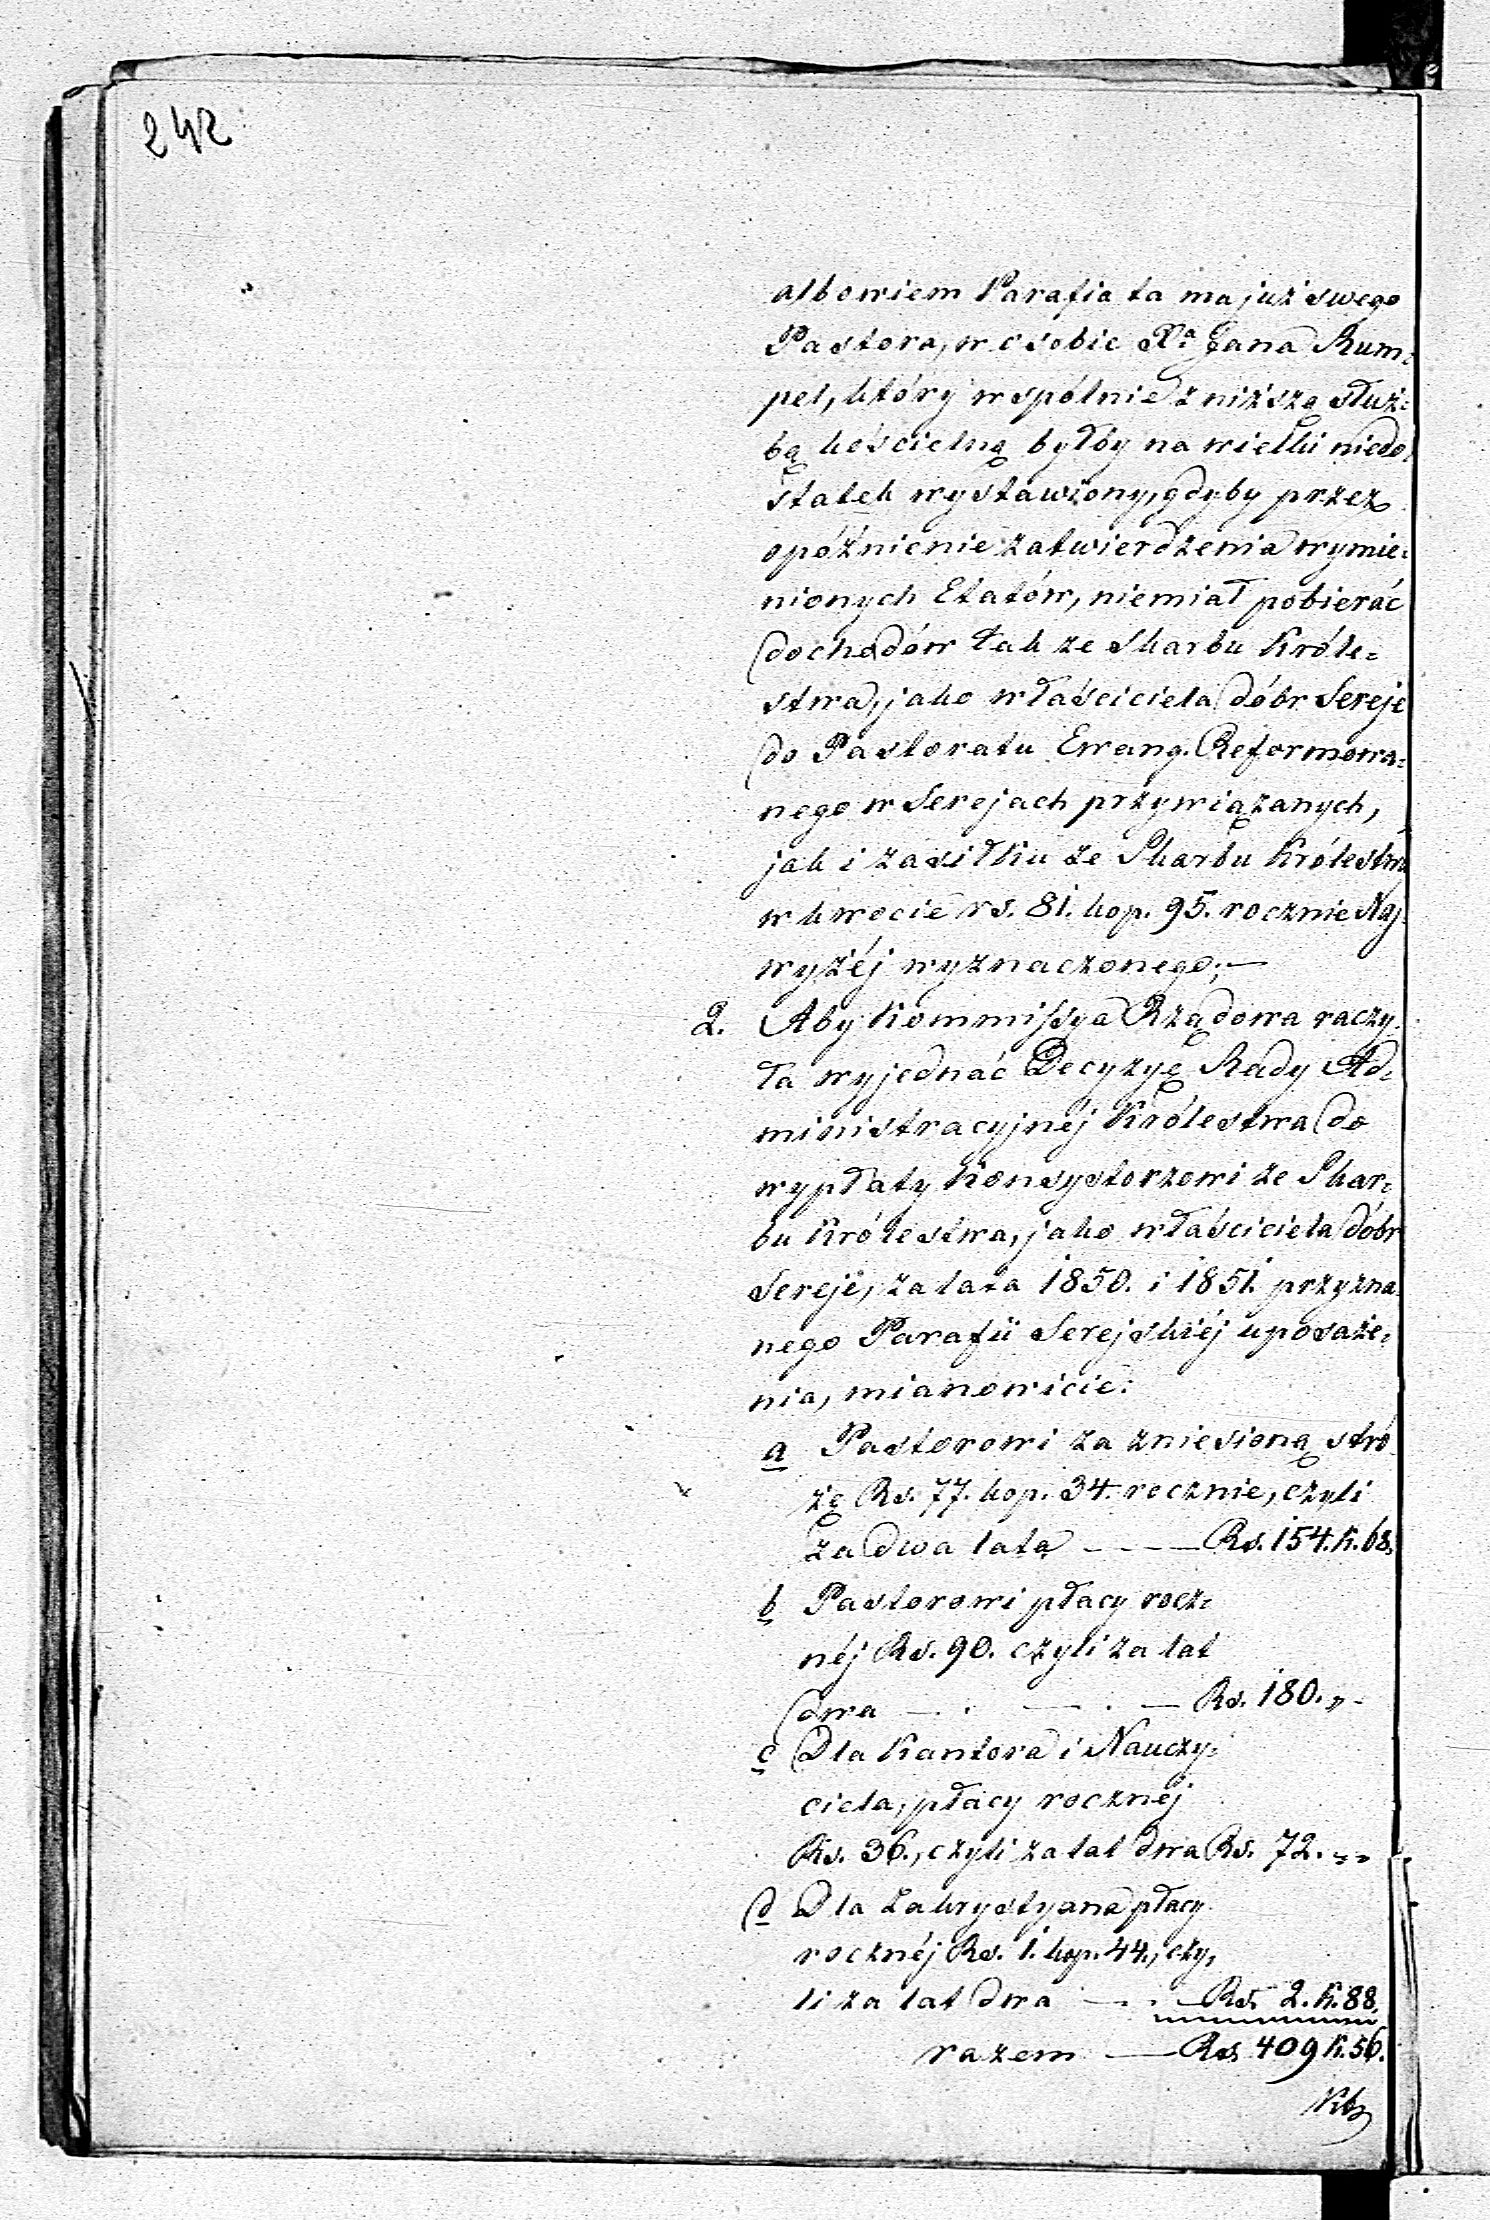 242
albowiem Parafia ta ma już swego
Pastora, w osobie Xa Jana Rum=
pel, który wspólnie z niższą służ=
bą kościelną byłby na wielki niedo,
statek wystawiony, gdyby przez
opóźnienie zatwierdzenia wymie=
nionych Etatów, niemiał pobierać
dochodów tak ze Skarbu Króle=
stwa, jako właściciela dóbr Sereje
do Pastoratu Ewang. Reformowa=
nego w Serejach przywiązanych,
jak i zasiłku ze Skarbu Królestwa
w kwocie rs. 81. kop. 95. rocznie Naj
wyżéj wyznaczonego;—
2. Aby Kommissya Rządowa raczy
ła wyjednać Decyzyę Rady Ad=
ministracyjnéj Królestwa do
wypłaty Konsystorzowi ze Skar=
bu Królestwa, jako właściciela dóbr
Sereje, za lata 1850. i 1851. przyzna
nego Parafii Serejskiéj uposaże=
nia, mianowicie:
a Pastorowi za zniesioną stró
żę Rs. 77. kop. 34. rocznie, czyli
za dwa lata ---- Rs. 154. K. 68.
b Pastorowi płacy rocz=
néj Rs. 90. czyli za lat
dwa — . — . — Rs. 180. „ -
c Dla Kantora i Nauczy=
ciela, płacy rocznéj
Rs. 36., czyli za lat dwa Rs. 72. „ „
d Dla Zakrystyana płacy
rocznéj Rs. 1. kop. 44., czy,
li za lat dwa — . . — Rs. 2. K. 88.
razem — Rs. 409 K. 56.